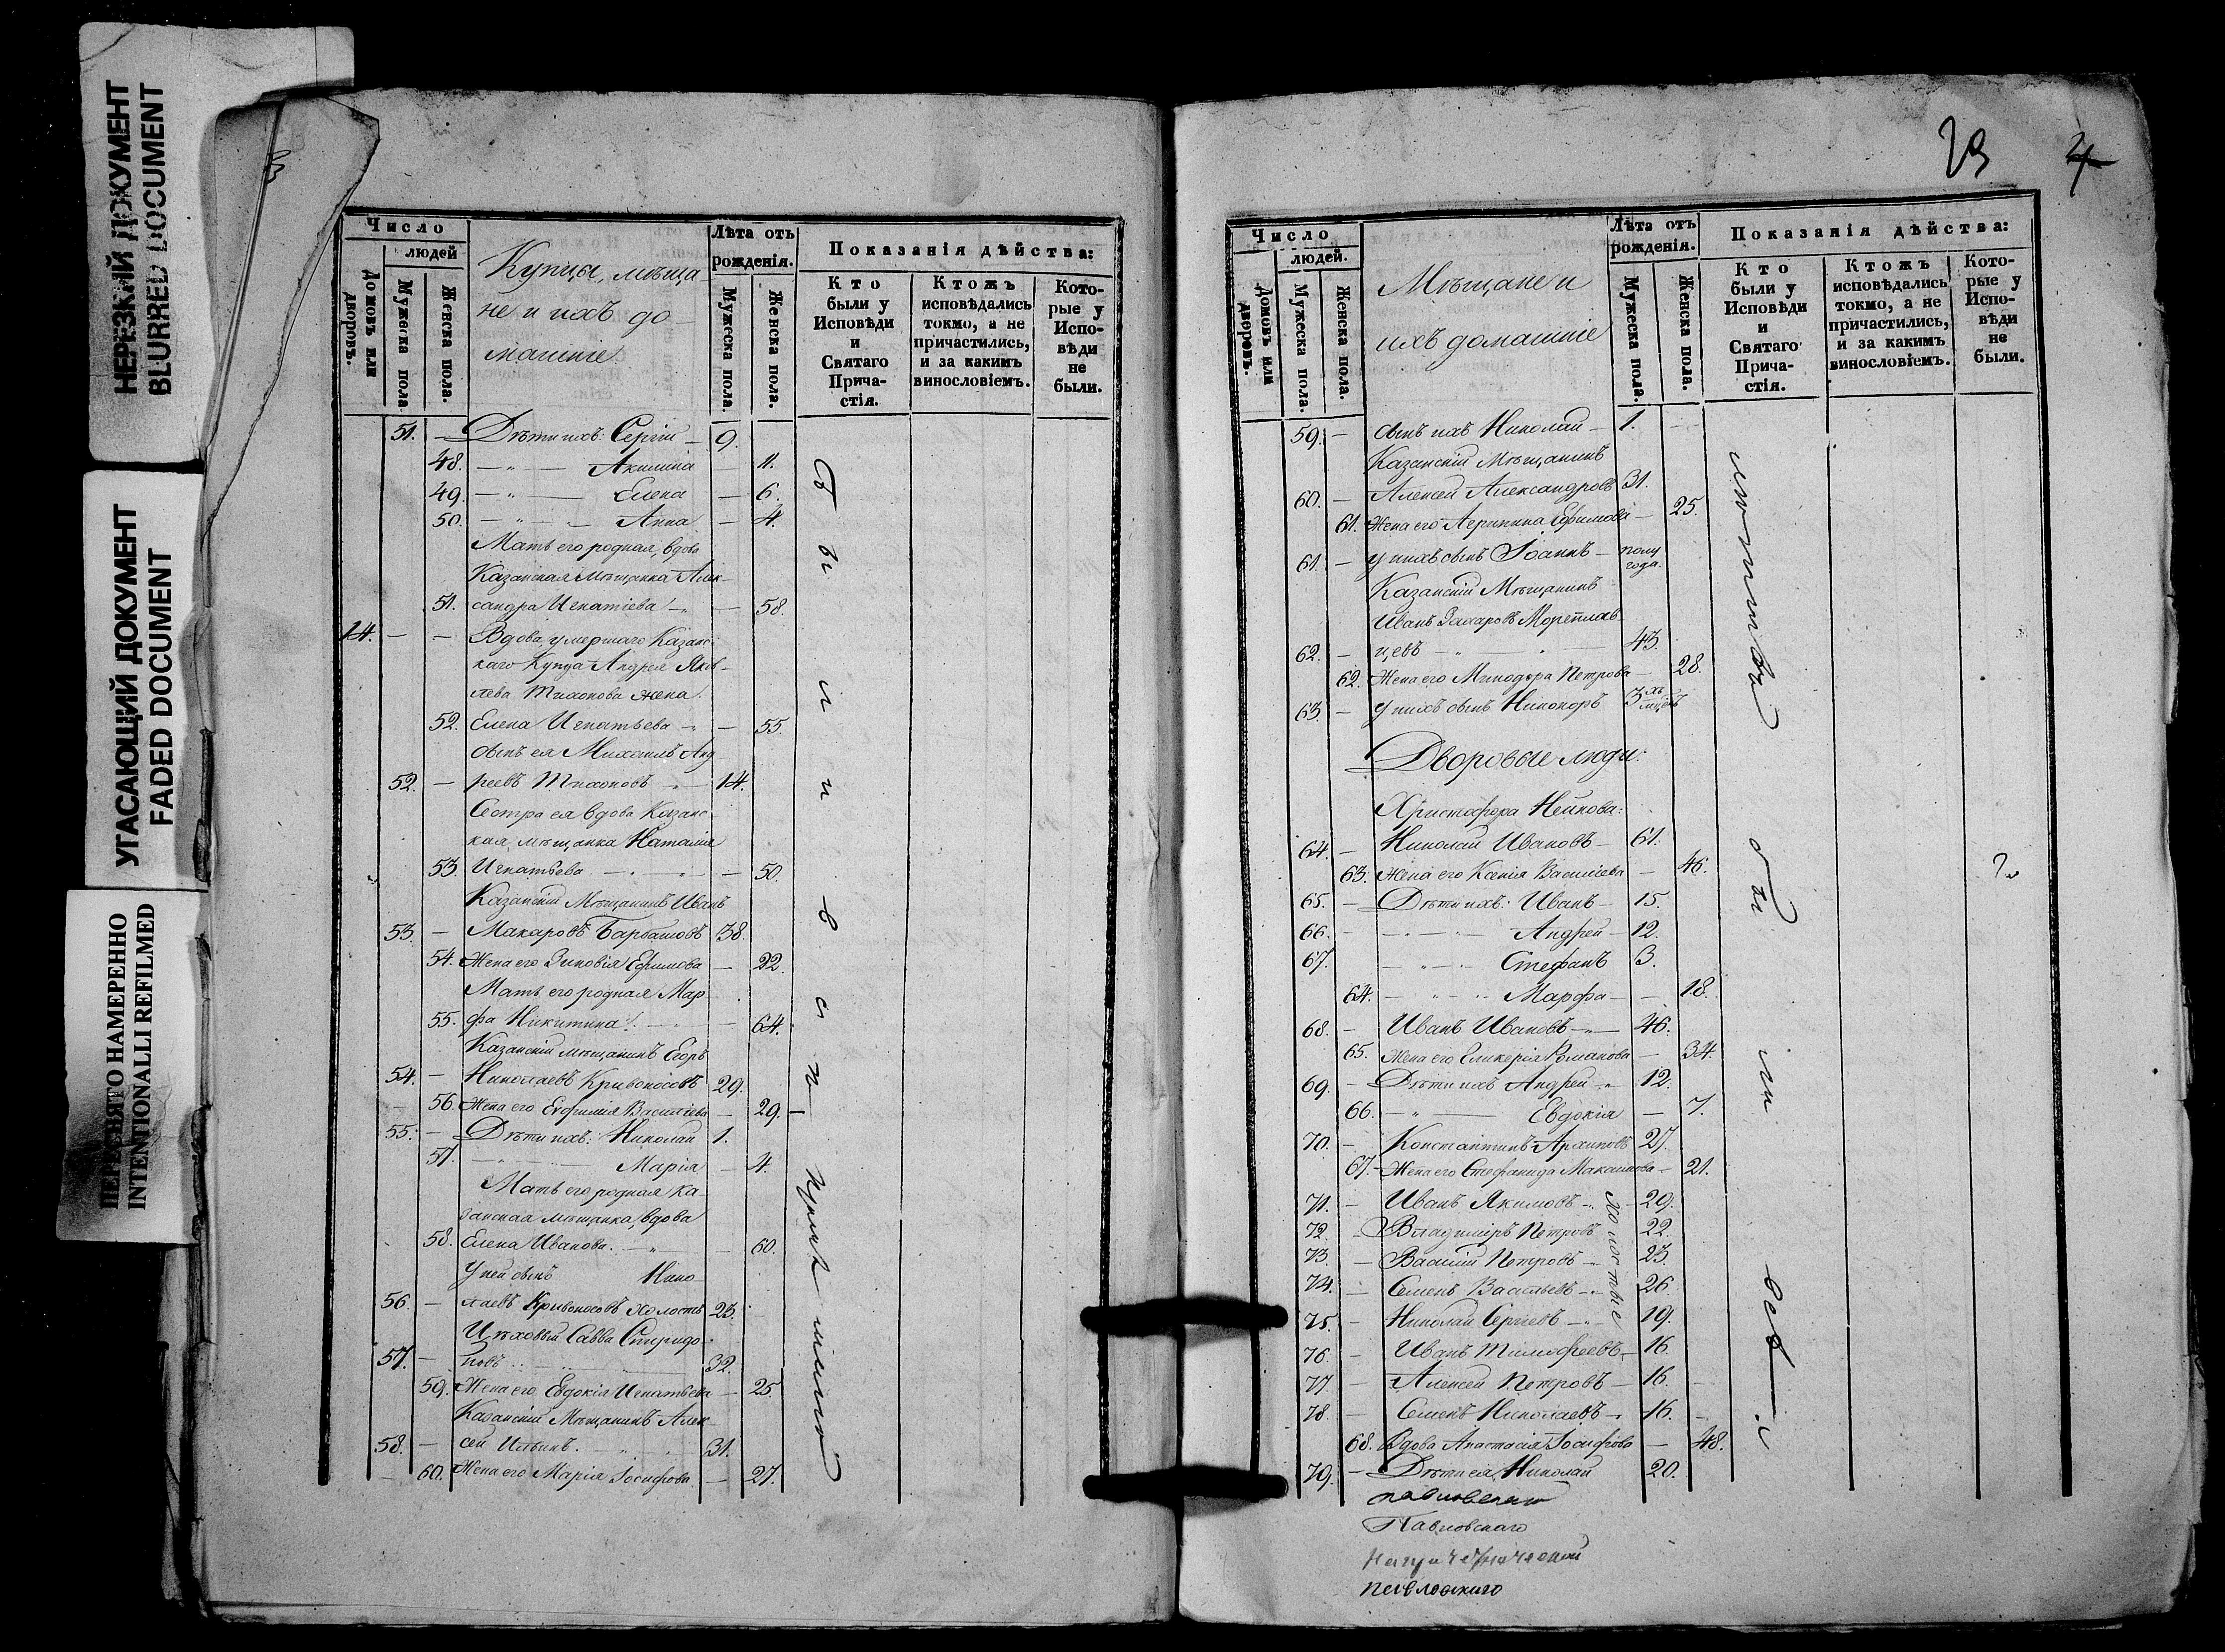 НЕРЕЗКИЙ ДОКУМЕНТ
BLURRED DOCUMENT
УГАСАЮЩИЙ ДОКУМЕНТ
FADED DOCUMENT
ПЕРЕСНЯТО НАМЕРЕННО
INTENTIONALLI REFILMED
Число
людей
Домовъ или дворовъ.
Мужеска пола
Женска пола.
Купцы, мѣща-
не и ихъ до-
машніе.
Лѣта отъ рожденія.
Мужеска пола.
Женска пола.
Показанія дѣйства:
Кто были у Исповѣди и Святаго Прича-стія.
Ктожъ исповѣдались токмо, а не причастились, и за какимъ винословіемъ.
Кото-рые у Испо-вѣди не были.
51. — Дѣти ихъ: Сергій — 9.
48. — „ — Акилина — 11.
49. — „ — Елена — 6.
50. — „ — Анна — 4.
Мать его родная, вдова
Казанская Мѣщанка Алек-
51. сандра Игнатіева — „ — 58.
14. — — Вдова, умершаго Казанс-
каго Купца Андрея Яков-
лева Тихонова жена
52. Елена Игнатьева — „ — 55.
сынъ ея Михаилъ Анд
52. — реевъ Тихоновъ — „ — 14.
Сестра ея вдова Казанс-
кая мѣщанка Наталія
53. Игнатьева — „ — 50.
Казанскій Мѣщанинъ Иванъ
53. — Макаровъ Барбашовъ 38.
54. Жена его Зиновія Ефимова — 22.
Мать его родная Мар-
55. фа Никитина — „ — 64.
Казанскій мѣщанинъ Егоръ
54. — Николаевъ Кривоносовъ 29.
56. Жена его Евфимія Васильева — 29. —
55. — Дѣти ихъ: Николай 1.
57. — „ — Марія — 4.
Мать его родная Ка-
занская мѣщанка, вдова
58. Елена Иванова. — „ — 60.
У ней сынъ Нико-
56. — лаевъ Кривоносовъ холостъ 23.
Цѣховый Савва Спиридо-
57. — новъ 32.
59. Жена его Евдокія Игнатьева — 25
Казанскій Мѣщанинъ Алек-
58. — сей Ильинъ. — „ — 31.
60. Жена его Марія Іосифова — 27.
Были в
4
Число
людей.
Домовъ или дворовъ.
Мужеска пола.
Женска пола.
Мѣщане и
ихъ домашніе
Лѣта отъ рожденія.
Мужеска пола.
Женска пола.
Показанія дѣйства:
Кто были у Исповѣди и Святаго Прича-стія.
Ктожъ исповѣдались токмо, а не причастились, и за какимъ винословіемъ.
Кото-рые у Испо-вѣди не были.
59. — сынъ ихъ Николай — 1.
Казанскій Мѣщанинъ
60. — Алексей Александровъ 31.
61. Жена его Агрипина Ефимова — 25.
61. — у нихъ сынъ Іоаннъ — полу
года.
Казанскій Мѣщанинъ
Иванъ Захаровъ Мореплав-
62. — цевъ — „ — 43.
62. Жена его Минодора Петрова — 28.
63. — у нихъ сынъ Никоноръ 3хъ
Дворовые люди:
Христофора Нейкова:
64. — Николай Ивановъ — 61.
63. Жена его Ксенія Василіева — 46.
65. — Дѣти ихъ: Иванъ — 15.
66. — „ — Андрей — 12.
67. — „ — Стефанъ 3.
64. — „ — Марфа — 18.
68. — Иванъ Ивановъ — „ — 46.
65. Жена его Гликерія Романова — 34.
69. — Дѣти ихъ Андрей „ 12.
66. — „ — Евдокія — 7.
70. — Константинъ Архиповъ 27.
67. — Жена его Стефанида Максимова — 21.
71. — Иванъ Якимовъ — „ — 29.
72. — Владиміръ Петровъ 22.
73. — Василій Петровъ — „ 23.
74. — Семенъ Васильевъ — „ 26.
75. — Николай Сергѣевъ — „ 19.
холостые
76. — Иванъ Тимофеевъ — 16.
77. — Алексей Петровъ — 16.
78. — Семенъ Николаевъ — 16.
68. Вдова Анастасія Іосифова — 48.
79. — Дѣти ея, Николай 20.
были всѣ
Павловскаго
Павловскаго